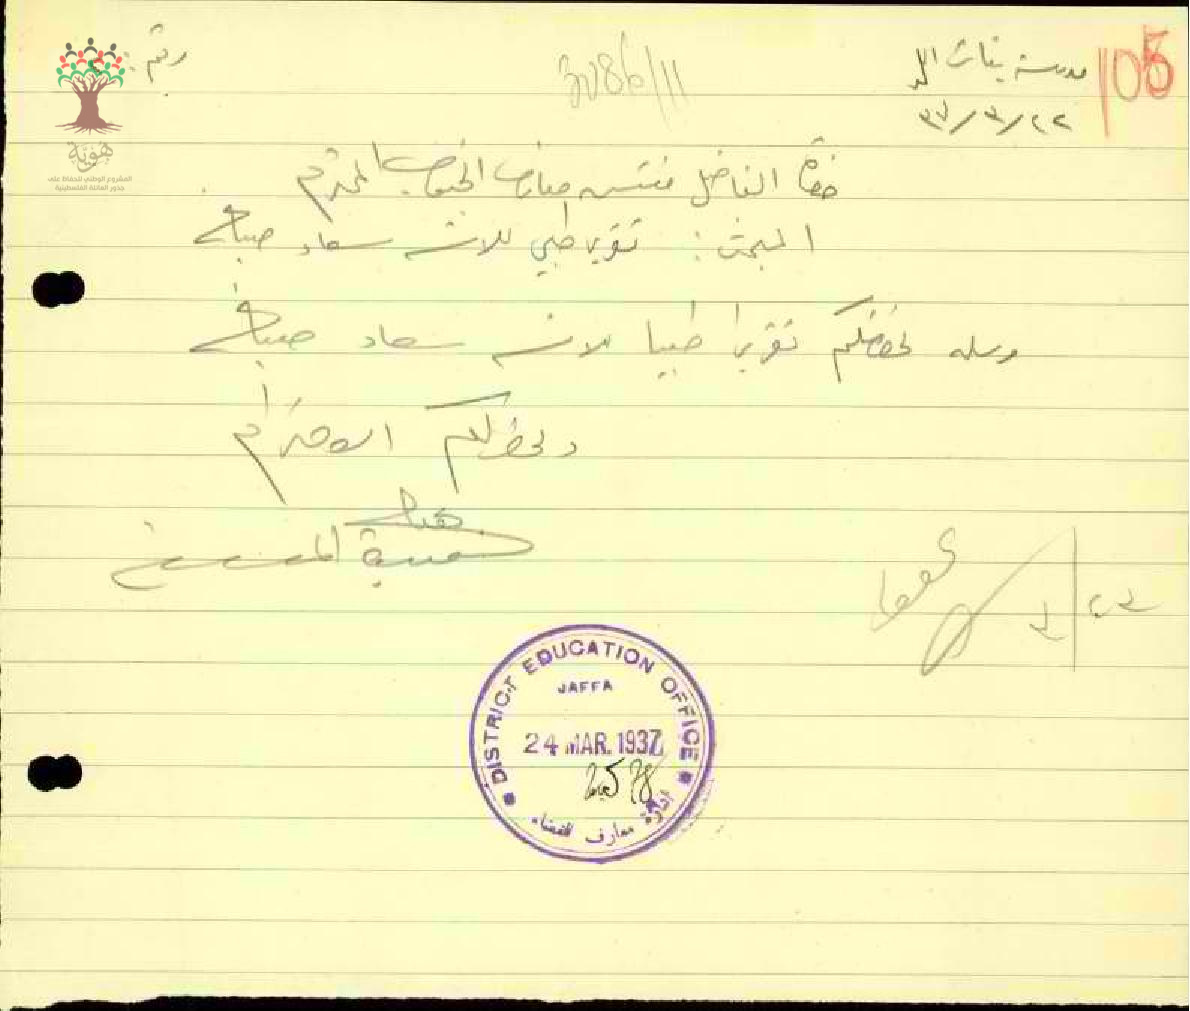 105
مدرسة بنات اللد
٢٢/٣/٣٧
3086/11
رقم :
هوية
المشروع الوطني للحفاظ على
جذور العائلة الفلسطينية
حضرة الفاضل مفتش معارف الجنوب المحترم
المبحث : تقرير طبي للآنسة سعاد صباغ
وسله لحضرتكم تقريرا طبيا للآنسة سعاد صباغ
ولحضرتكم الاحترام
DISTRICT EDUCATION OFFICE
JAFFA
24 MAR. 1937
ادارة معارف القضاء